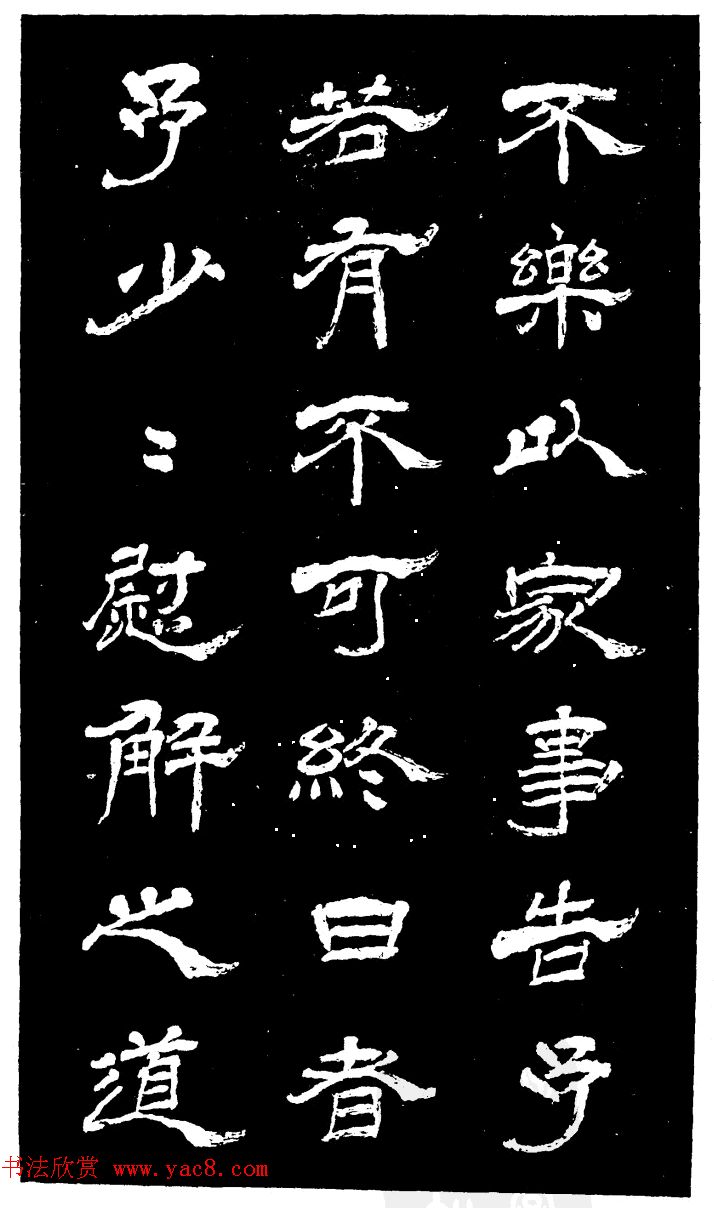 不樂以家事告予
若有不可終日者
予少〻慰解之道
书法欣赏 www.yac8.com